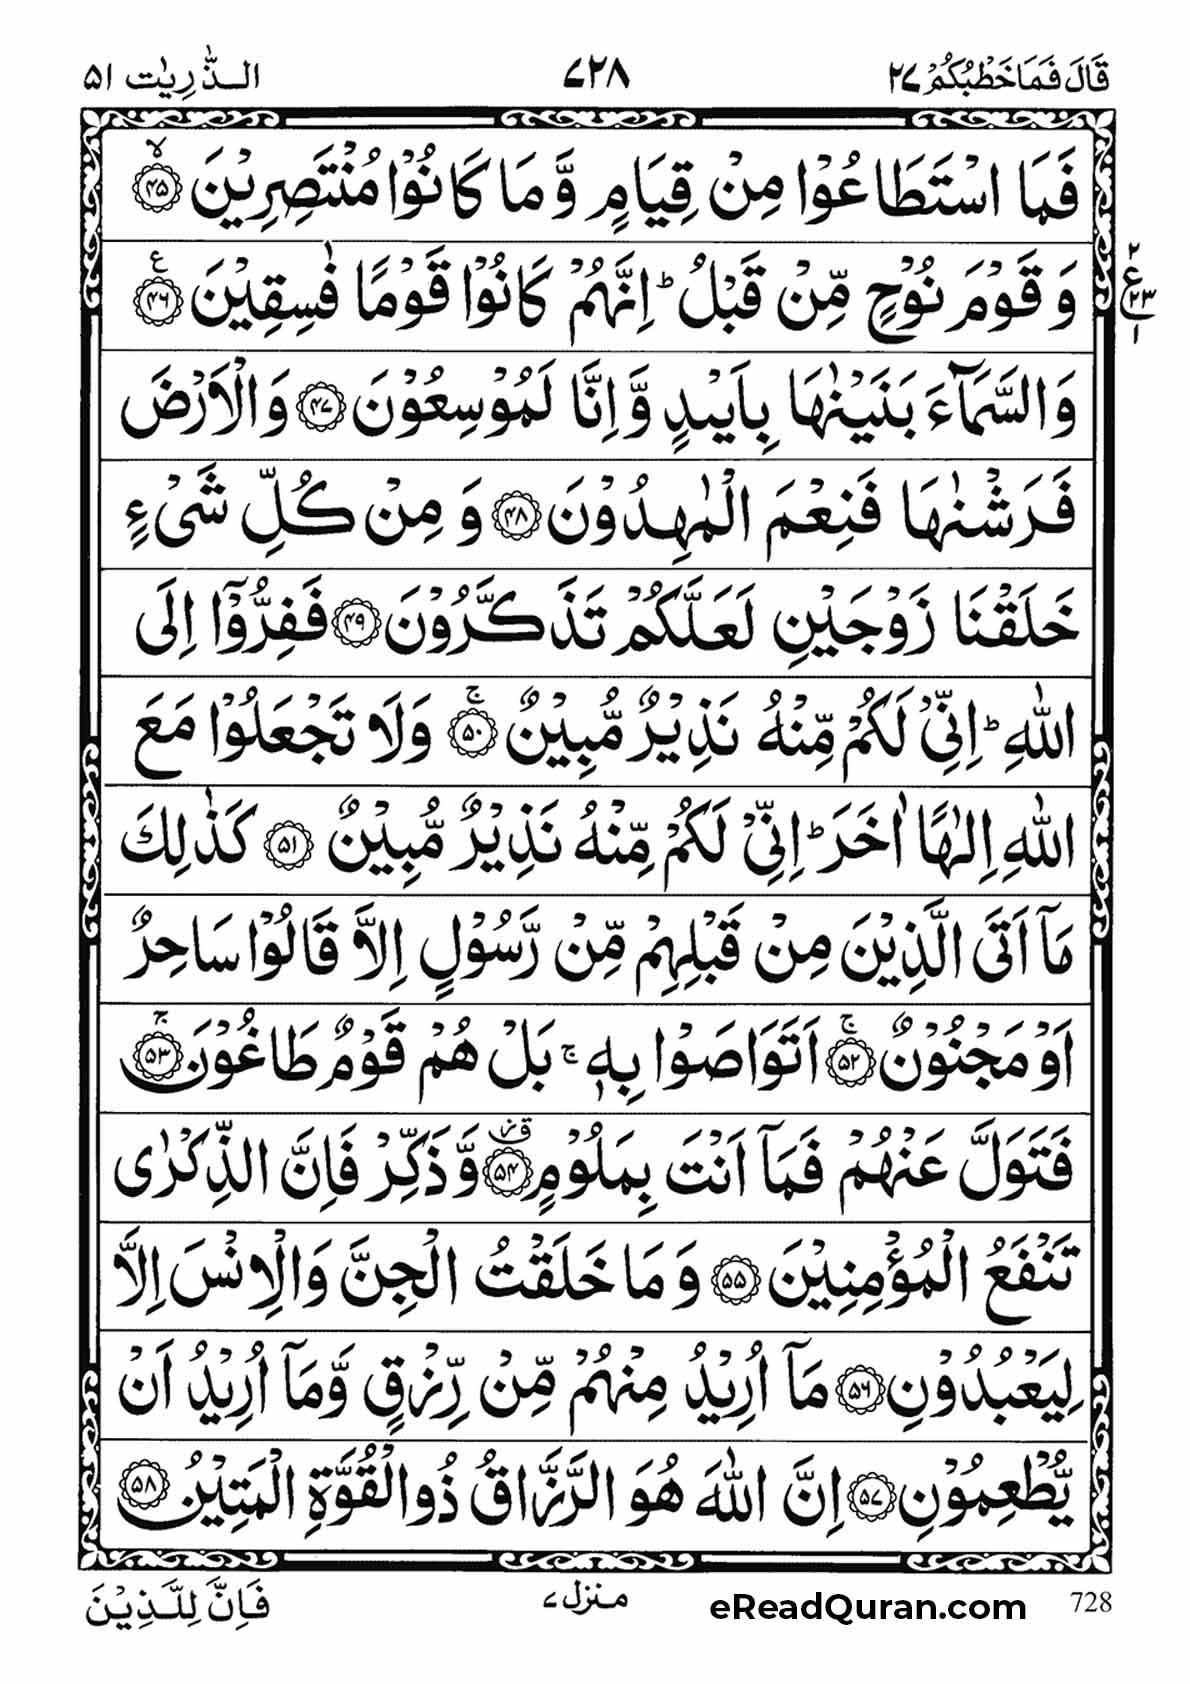 قَالَ فَمَا خَطْبُكُمْ ۲۷ ۷۲۸ الذّٰرِیٰت ۵۱
فَمَا اسْتَطَاعُوْا مِنْ قِیَامٍ وَّ مَا كَانُوْا مُنْتَصِرِیْنَ ۙ‏﴿۴۵﴾
وَ قَوْمَ نُوْحٍ مِّنْ قَبْلُ ؕ اِنَّهُمْ كَانُوْا قَوْمًا فٰسِقِیْنَ ﴿۴۶﴾ ع
۲ ع ۲۳ ۱
وَ السَّمَآءَ بَنَیْنٰهَا بِاَیْىدٍ وَّ اِنَّا لَمُوْسِعُوْنَ ﴿۴۷﴾ وَ الْاَرْضَ
فَرَشْنٰهَا فَنِعْمَ الْمٰهِدُوْنَ ﴿۴۸﴾ وَ مِنْ كُلِّ شَیْءٍ
خَلَقْنَا زَوْجَیْنِ لَعَلَّكُمْ تَذَكَّرُوْنَ ﴿۴۹﴾ فَفِرُّوْۤا اِلَی
اللّٰهِ ؕ اِنِّیْ لَكُمْ مِّنْهُ نَذِیْرٌ مُّبِیْنٌ ۚ﴿۵۰﴾ وَ لَا تَجْعَلُوْا مَعَ
اللّٰهِ اِلٰهًا اٰخَرَ ؕ اِنِّیْ لَكُمْ مِّنْهُ نَذِیْرٌ مُّبِیْنٌ ﴿۵۱﴾ كَذٰلِكَ
مَاۤ اَتَی الَّذِیْنَ مِنْ قَبْلِهِمْ مِّنْ رَّسُوْلٍ اِلَّا قَالُوْا سَاحِرٌ
اَوْ مَجْنُوْنٌ ۚ﴿۵۲﴾ اَتَوَاصَوْا بِهٖ ۚ بَلْ هُمْ قَوْمٌ طَاغُوْنَ ۚ﴿۵۳﴾
فَتَوَلَّ عَنْهُمْ فَمَاۤ اَنْتَ بِمَلُوْمٍ ﴿۵۴﴾ وَّ ذَكِّرْ فَاِنَّ الذِّكْرٰی
تَنْفَعُ الْمُؤْمِنِیْنَ ﴿۵۵﴾ وَ مَا خَلَقْتُ الْجِنَّ وَ الْاِنْسَ اِلَّا
لِیَعْبُدُوْنِ ﴿۵۶﴾ مَاۤ اُرِیْدُ مِنْهُمْ مِّنْ رِّزْقٍ وَّ مَاۤ اُرِیْدُ اَنْ
یُّطْعِمُوْنِ ﴿۵۷﴾ اِنَّ اللّٰهَ هُوَ الرَّزَّاقُ ذُو الْقُوَّةِ الْمَتِیْنُ ﴿۵۸﴾
728 eReadQuran.com منزل ۷ فَاِنَّ لِلَّذِیْنَ